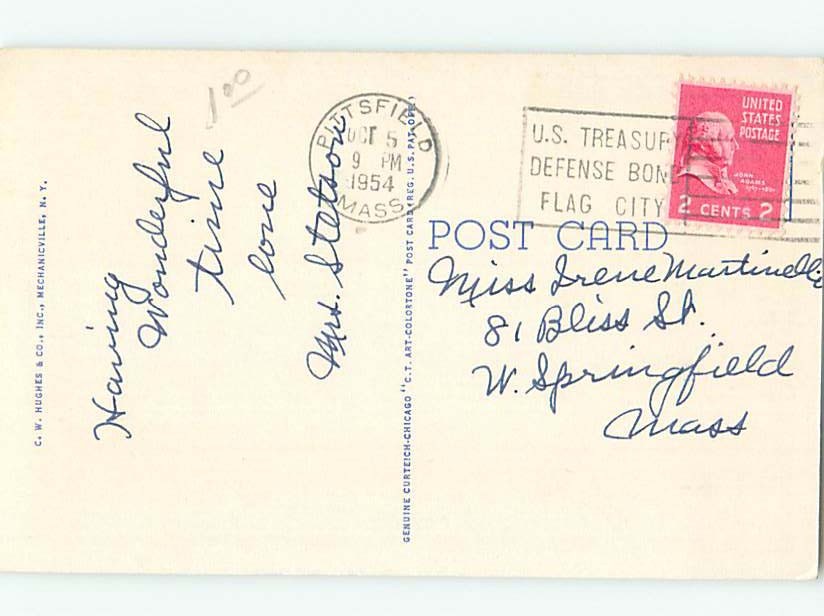 C. W. HUGHES & CO., INC., MECHANICVILLE, N. Y.
1.00
Having
Wonderful
time
love
Mrs. Stetson
PITTSFIELD
OCT 5
9 PM
1954
MASS
U.S. TREASURY
DEFENSE BOND
FLAG CITY
UNITED
STATES
POSTAGE
JOHN
ADAMS
2 CENTS 2
POST CARD
GENUINE CURTEICH-CHICAGO "C.T. ART-COLORTONE" POST CARD (REG. U.S. PAT. OFF.)
Miss Irene Martinelli
81 Bliss St.
W. Springfield
Mass